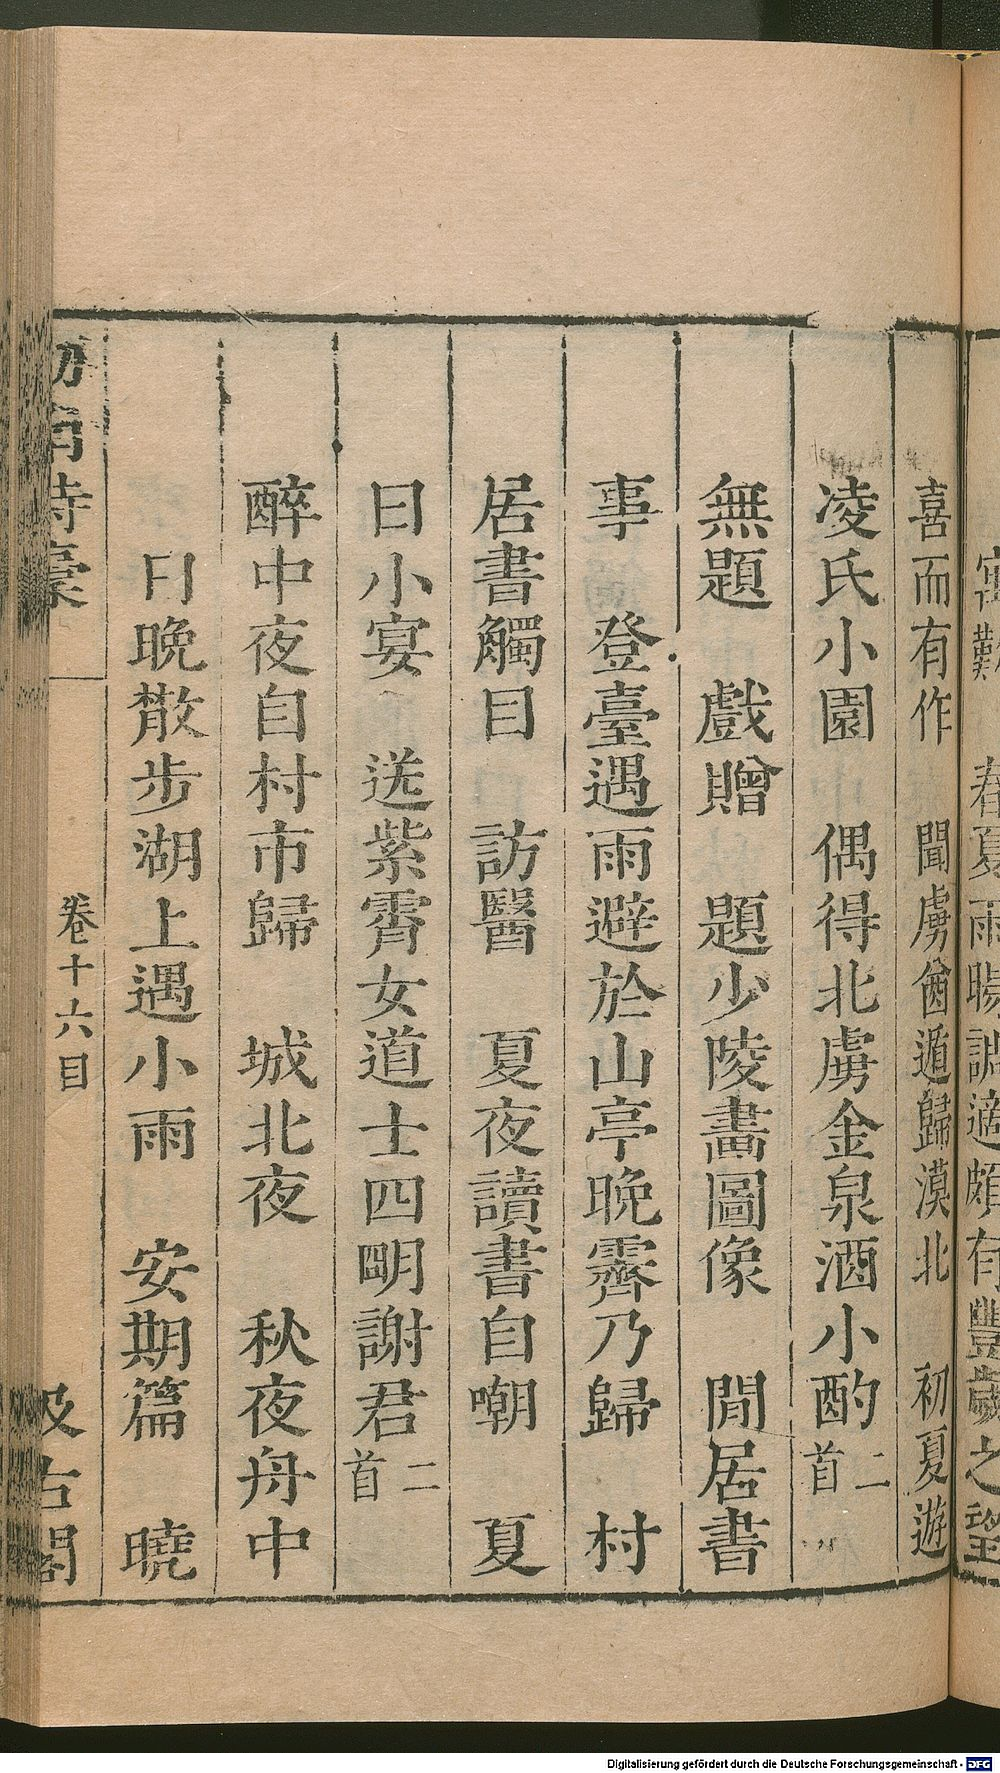 春夏雨暘調適頗有豐歲之望
喜而有作　聞虜酋遁歸漠北　初夏遊
凌氏小園　偶得北虜金泉酒小酌二首
無題　戲贈　題少陵畫圖像　閒居書
事　登臺遇雨避於山亭晚霽乃歸　村
居書觸目　訪醫　夏夜讀書自嘲　夏
日小宴　送紫霄女道士四明謝君二首
醉中夜自村市歸　城北夜　秋夜舟中
日晚散步湖上遇小雨　安期篇　曉
劍南詩稾　卷十六目　汲古閣
Digitalisierung gefördert durch die Deutsche Forschungsgemeinschaft - DFG